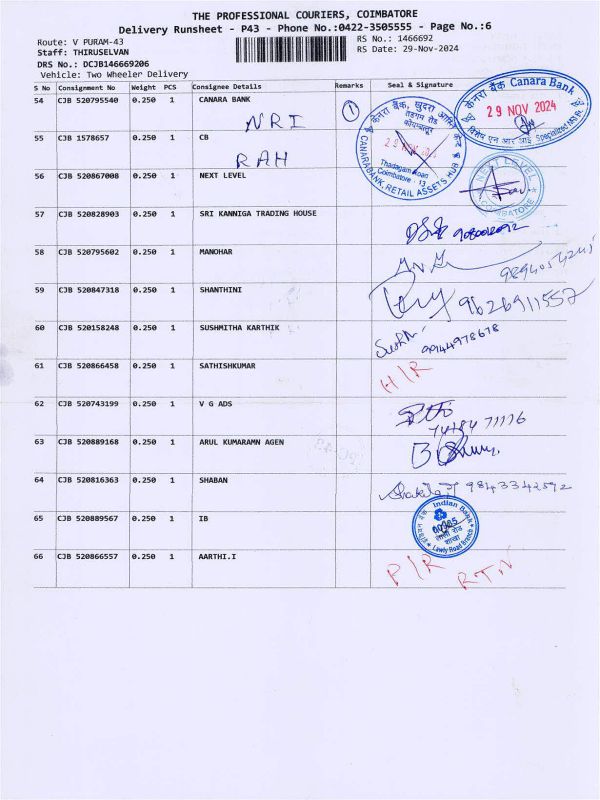 THE PROFESSIONAL COURIERS, COIMBATORE
Delivery Runsheet - P43 - Phone No.:0422-3505555 - Page No.:6
Route: V PURAM-43
RS No.: 1466692
Staff: THIRUSELVAN
RS Date: 29-Nov-2024
DRS No.: DCJB146669206
Vehicle: Two Wheeler Delivery
S No Consignment No Weight PCS Consignee Details Remarks Seal & Signature
54 CJB 520795540 0.250 1 CANARA BANK 1
NRI
केनरा बैंक Canara Bank
29 NOV 2024
केनरा बैंक, खुदरा
कोयंबत्तूर
Thadagam Road
Coimbatore - 13
CANARA BANK, RETAIL ASSETS HUB
55 CJB 1578657 0.250 1 CB
RAH
56 CJB 520867008 0.250 1 NEXT LEVEL
NEXT LEVEL
COIMBATORE
57 CJB 520828903 0.250 1 SRI KANNIGA TRADING HOUSE
58 CJB 520795602 0.250 1 MANOHAR
59 CJB 520847318 0.250 1 SHANTHINI
9626911557
60 CJB 520158248 0.250 1 SUSHMITHA KARTHIK
9944978678
61 CJB 520866458 0.250 1 SATHISHKUMAR
H/R
62 CJB 520743199 0.250 1 V G ADS
63 CJB 520889168 0.250 1 ARUL KUMARAMN AGEN
64 CJB 520816363 0.250 1 SHABAN
9843342592
65 CJB 520889567 0.250 1 IB
Indian Bank
00905
शाखा
Lawly Road Branch
66 CJB 520866557 0.250 1 AARTHI.I
P/R RTN